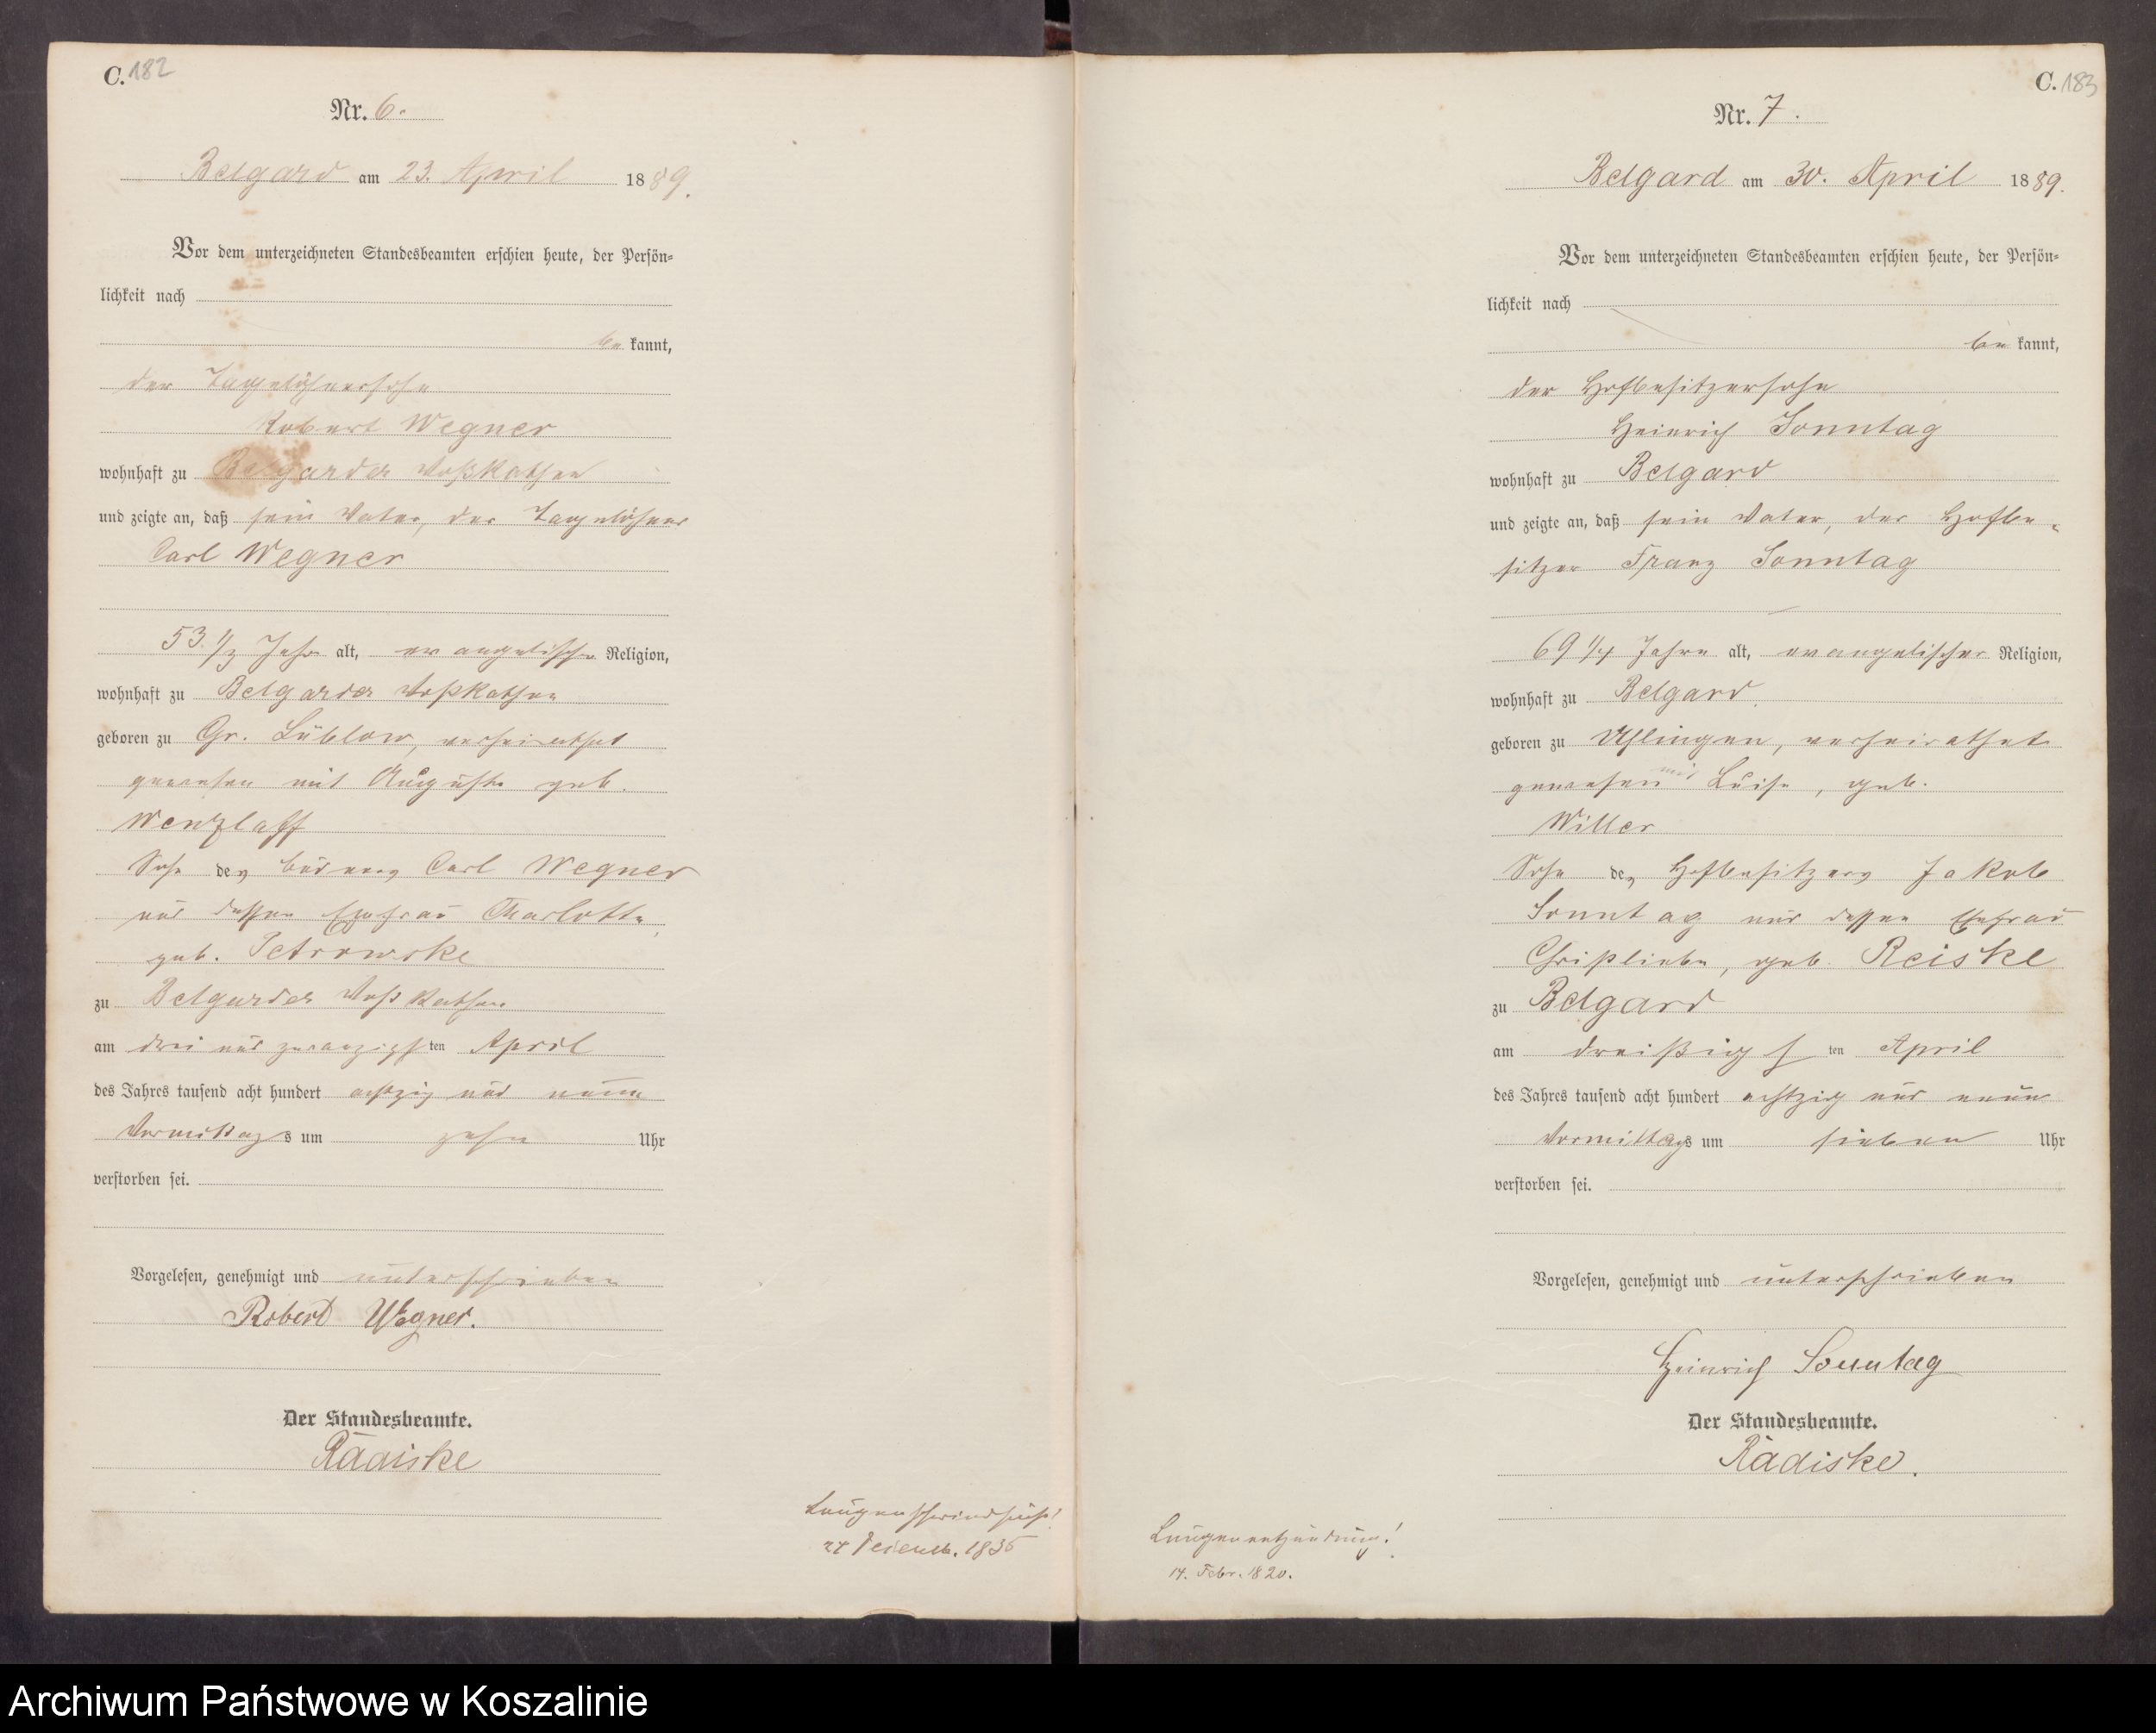 C. 182
Nr. 6.
Belgard am 23. April 1889.
Vor dem unterzeichneten Standesbeamten erschien heute, der Persön=
lichkeit nach
be kannt,
der Tagelöhnersohn
Robert Wegner
wohnhaft zu Belgarder Voßkathen
und zeigte an, daß sein Vater, der Tagelöhner
Carl Wegner
53 1/3 Jahr alt, evangelischer Religion,
wohnhaft zu Belgarder Voßkathen
geboren zu Gr. Lüblow, verheirathet
gewesen mit Auguste geb.
Wenzlaff
Sohn des Büdners Carl Wegner
und dessen Ehefrau Charlotte,
geb. Petrowske
zu Belgarder Voßkathen
am drei und zwanzigsten April
des Jahres tausend acht hundert achtzig und neun
Vormittags um zehn Uhr
verstorben sei.
Vorgelesen, genehmigt und unterschrieben
Robert Wegner.
Der Standesbeamte.
Rädiske
Lungenschwindsucht!
Decemb. 1835
C. 183
Nr. 7.
Belgard am 30. April 1889.
Vor dem unterzeichneten Standesbeamten erschien heute, der Persön=
lichkeit nach
be kannt,
der Hofbesitzersohn
Heinrich Sonntag
wohnhaft zu Belgard
und zeigte an, daß sein Vater, der Hofbe=
sitzer Franz Sonntag
69 1/4 Jahre alt, evangelischer Religion,
wohnhaft zu Belgard
geboren zu Uhlingen, verheirathet
gewesen mit Luise, geb.
Witter
Sohn des Hofbesitzers Jakob
Sonntag und dessen Ehefrau
Christliebe, geb. Reiske
zu Belgard
am dreißigsten April
des Jahres tausend acht hundert achtzig und neun
Vormittags um sieben Uhr
verstorben sei.
Vorgelesen, genehmigt und unterschrieben
Heinrich Sonntag
Der Standesbeamte.
Rädiske.
Lungenentzündung!
14. Febr. 1820.
Archiwum Państwowe w Koszalinie